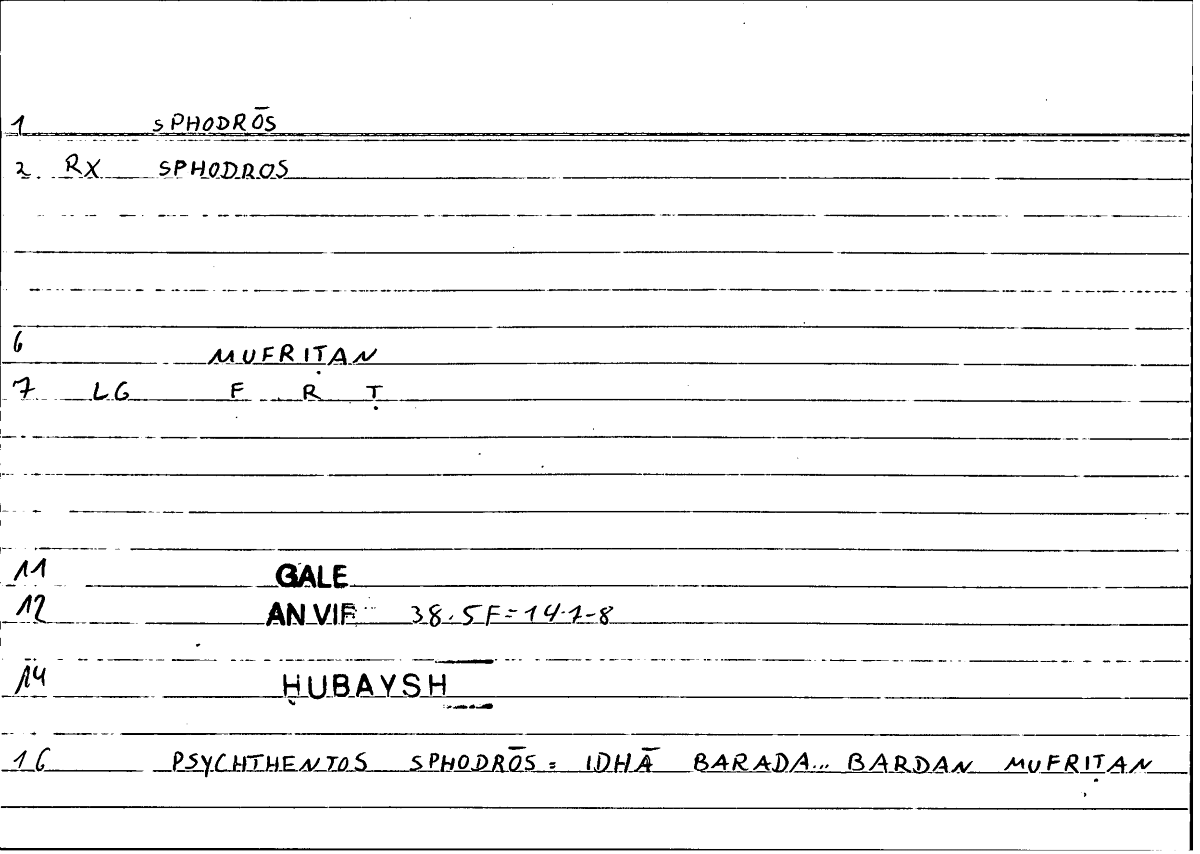 1 SPHODRŌS
2. RX SPHODROS
6 MUFRIṬAN
7 LG F R Ṭ
11 GALE
12 AN VIF 38.5F=14.1-8
14 ḤUBAYSH
16 PSYCHTHENTOS SPHODRŌS = IDHĀ BARADA... BARDAN MUFRIṬAN